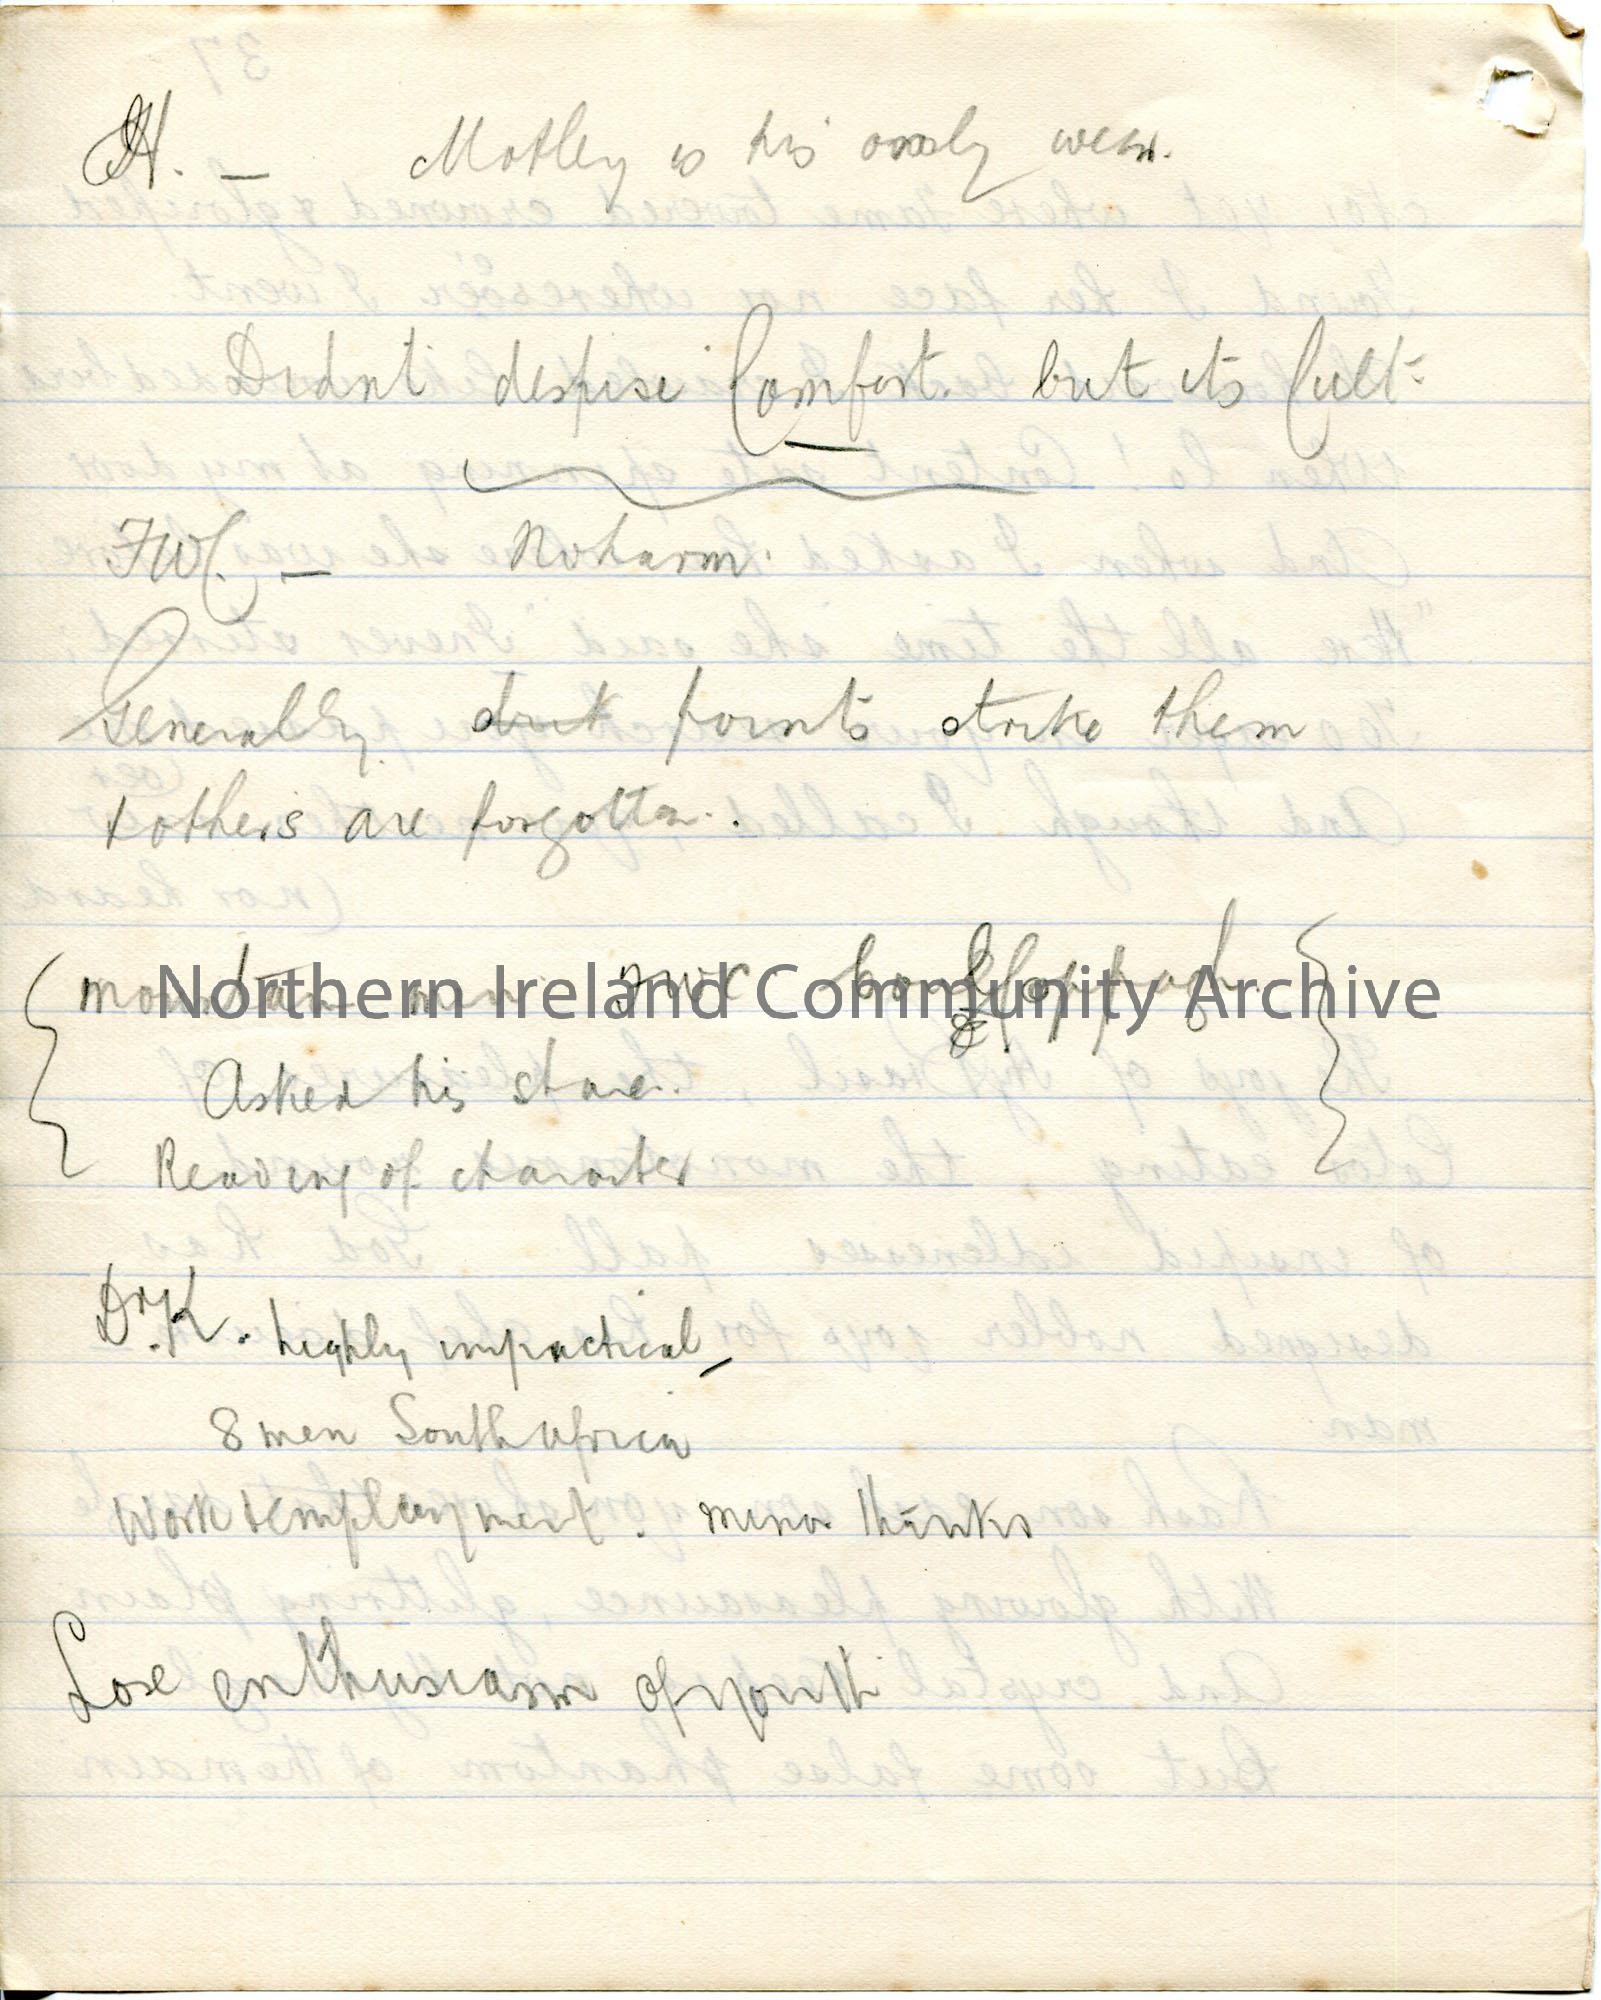 H. — Motley is his only wear.
Didn't despise Comfort. but its Cult:
FWC. — No harm.
Generally points strike them
& others are forgotten.
mountain men FWC
Northern Ireland Community Archive
Asked his share.
Reading of character
Dr. K. highly impractical —
8 men South Africa
Work & employment. minor thinks
Lose enthusiasm of youth